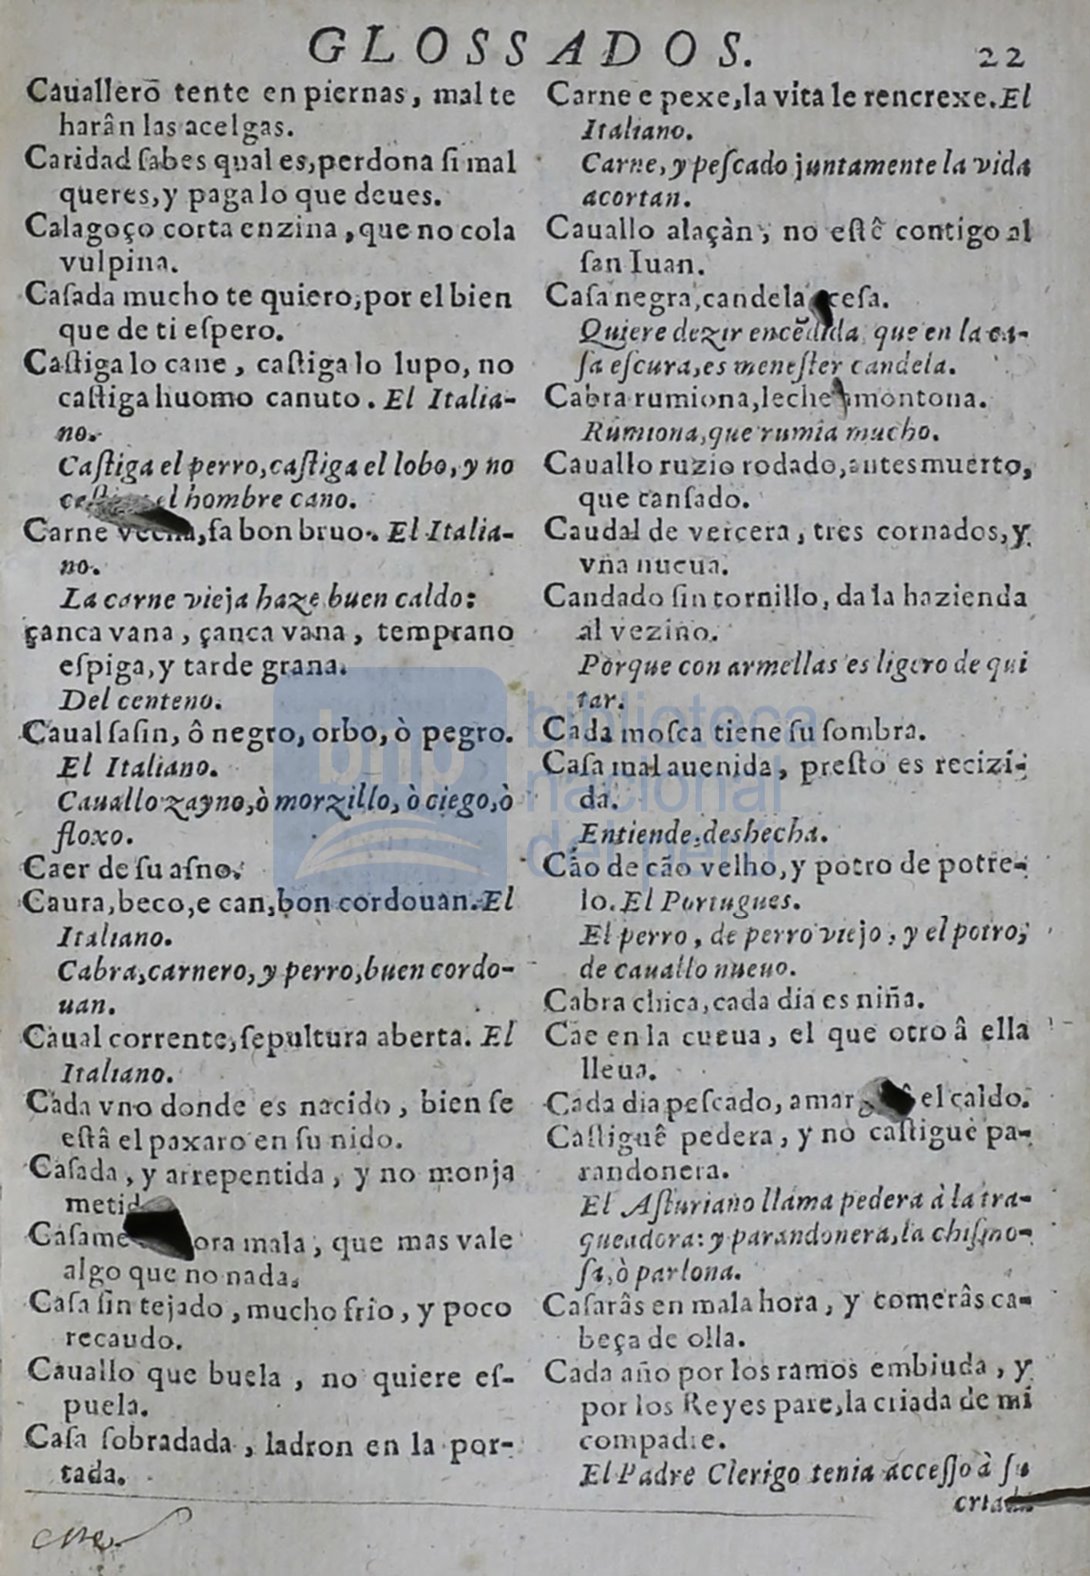 GLOSSADOS. 22
Cauallerõ tente en piernas, mal te
harân las acelgas.
Caridad sabes qual es, perdona si mal
queres, y paga lo que deues.
Calagoço corta enzina, que no cola
vulpina.
Casada mucho te quiero, por el bien
que de ti espero.
Castiga lo cane, castiga lo lupo, no
castiga huomo canuto. El Italia-
no.
Castiga el perro, castiga el lobo, y no
el hombre cano.
Carne vecha, fa bon bruo. El Italia-
no.
La carne vieja haze buen caldo:
çanca vana, çanca vana, temprano
espiga, y tarde grana.
Del centeno.
Caual sasin, ô negro, orbo, ò pegro.
El Italiano.
Cauallo zayno, ò morzillo, ò ciego, ò
floxo.
Caer de su asno.
Caura, beco, e can, bon cordouan. El
Italiano.
Cabra, carnero, y perro, buen cordo-
uan.
Caual corrente, sepultura aberta. El
Italiano.
Cada vno donde es nacido, bien se
estâ el paxaro en su nido.
Casada, y arrepentida, y no monja
metid
Casame ora mala, que mas vale
algo que no nada.
Casa sin tejado, mucho frio, y poco
recaudo.
Cauallo que buela, no quiere es-
puela.
Casa sobradada, ladron en la por-
tada.
Carne e pexe, la vita le rencrexe. El
Italiano.
Carne, y pescado juntamente la vida
acortan.
Cauallo alaçàn, no estê contigo al
san Iuan.
Casa negra, candela cesa.
Quiere dezir encẽdida, que en la ca-
sa escura, es menester candela.
Cabra rumiona, leche amontona.
Rumiona, que rumia mucho.
Cauallo ruzio rodado, antes muerto,
que cansado.
Caudal de vercera, tres cornados, y
vña nueua.
Candado sin tornillo, da la hazienda
al vezino.
Porque con armellas es ligero de qui
tar.
Cada mosca tiene su sombra.
Casa mal auenida, presto es recizi-
da.
Entiende, deshecha.
Cão de cão velho, y potro de potre-
lo. El Portugues.
El perro, de perro viejo, y el potro,
de cauallo nueuo.
Cabra chica, cada dia es niña.
Cae en la cueua, el que otro â ella
lleua.
Cada dia pescado, amarg el caldo.
Castiguê pedera, y no castigue pa-
randonera.
El Asturiano llama pedera à la tra-
queadora: y parandonera, la chismo-
sa, ò parlona.
Casarâs en mala hora, y comerâs ca-
beça de olla.
Cada año por los ramos embiuda, y
por los Reyes pare, la criada de mi
compadre.
El Padre Clerigo tenia accesso à su
criada
bnp biblioteca
nacional
del